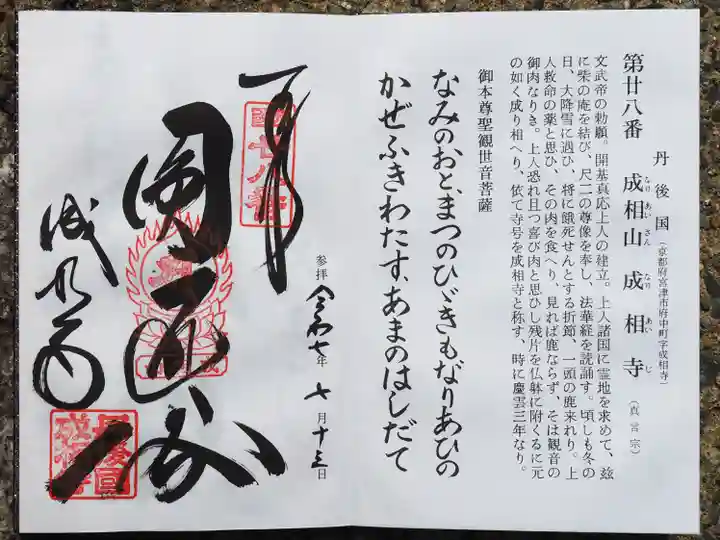 第廿八番 成相山 成相寺 (真言宗)
なり あい さん なり あい じ
丹後国 (京都府宮津市府中町字成相寺)
文武帝の勅願。開基真応上人の建立。上人諸国に霊地を求めて、玆
に柴の庵を結び、尺二の尊像を奉し、法華経を読誦す。頃しも冬の
日、大降雪に遇ひ、将に餓死せんとする折節、一頭の鹿来れり。上
人救命の薬と思ひ、その肉を食へり、見れば鹿ならず、そは観音の
御肉なりき。上人恐れ且つ喜び肉と思ひし残片を仏躰に附くるに元
の如く成り相へり、依て寺号を成相寺と称す、時に慶雲三年なり。
御本尊聖観世音菩薩
なみのおと、まつのひゞきもなりあひの
かぜふきわたす、あまのはしだて
参拝 令和七年 七月十三日
奉拝
第廿八番
成相寺
丹後國
成相寺